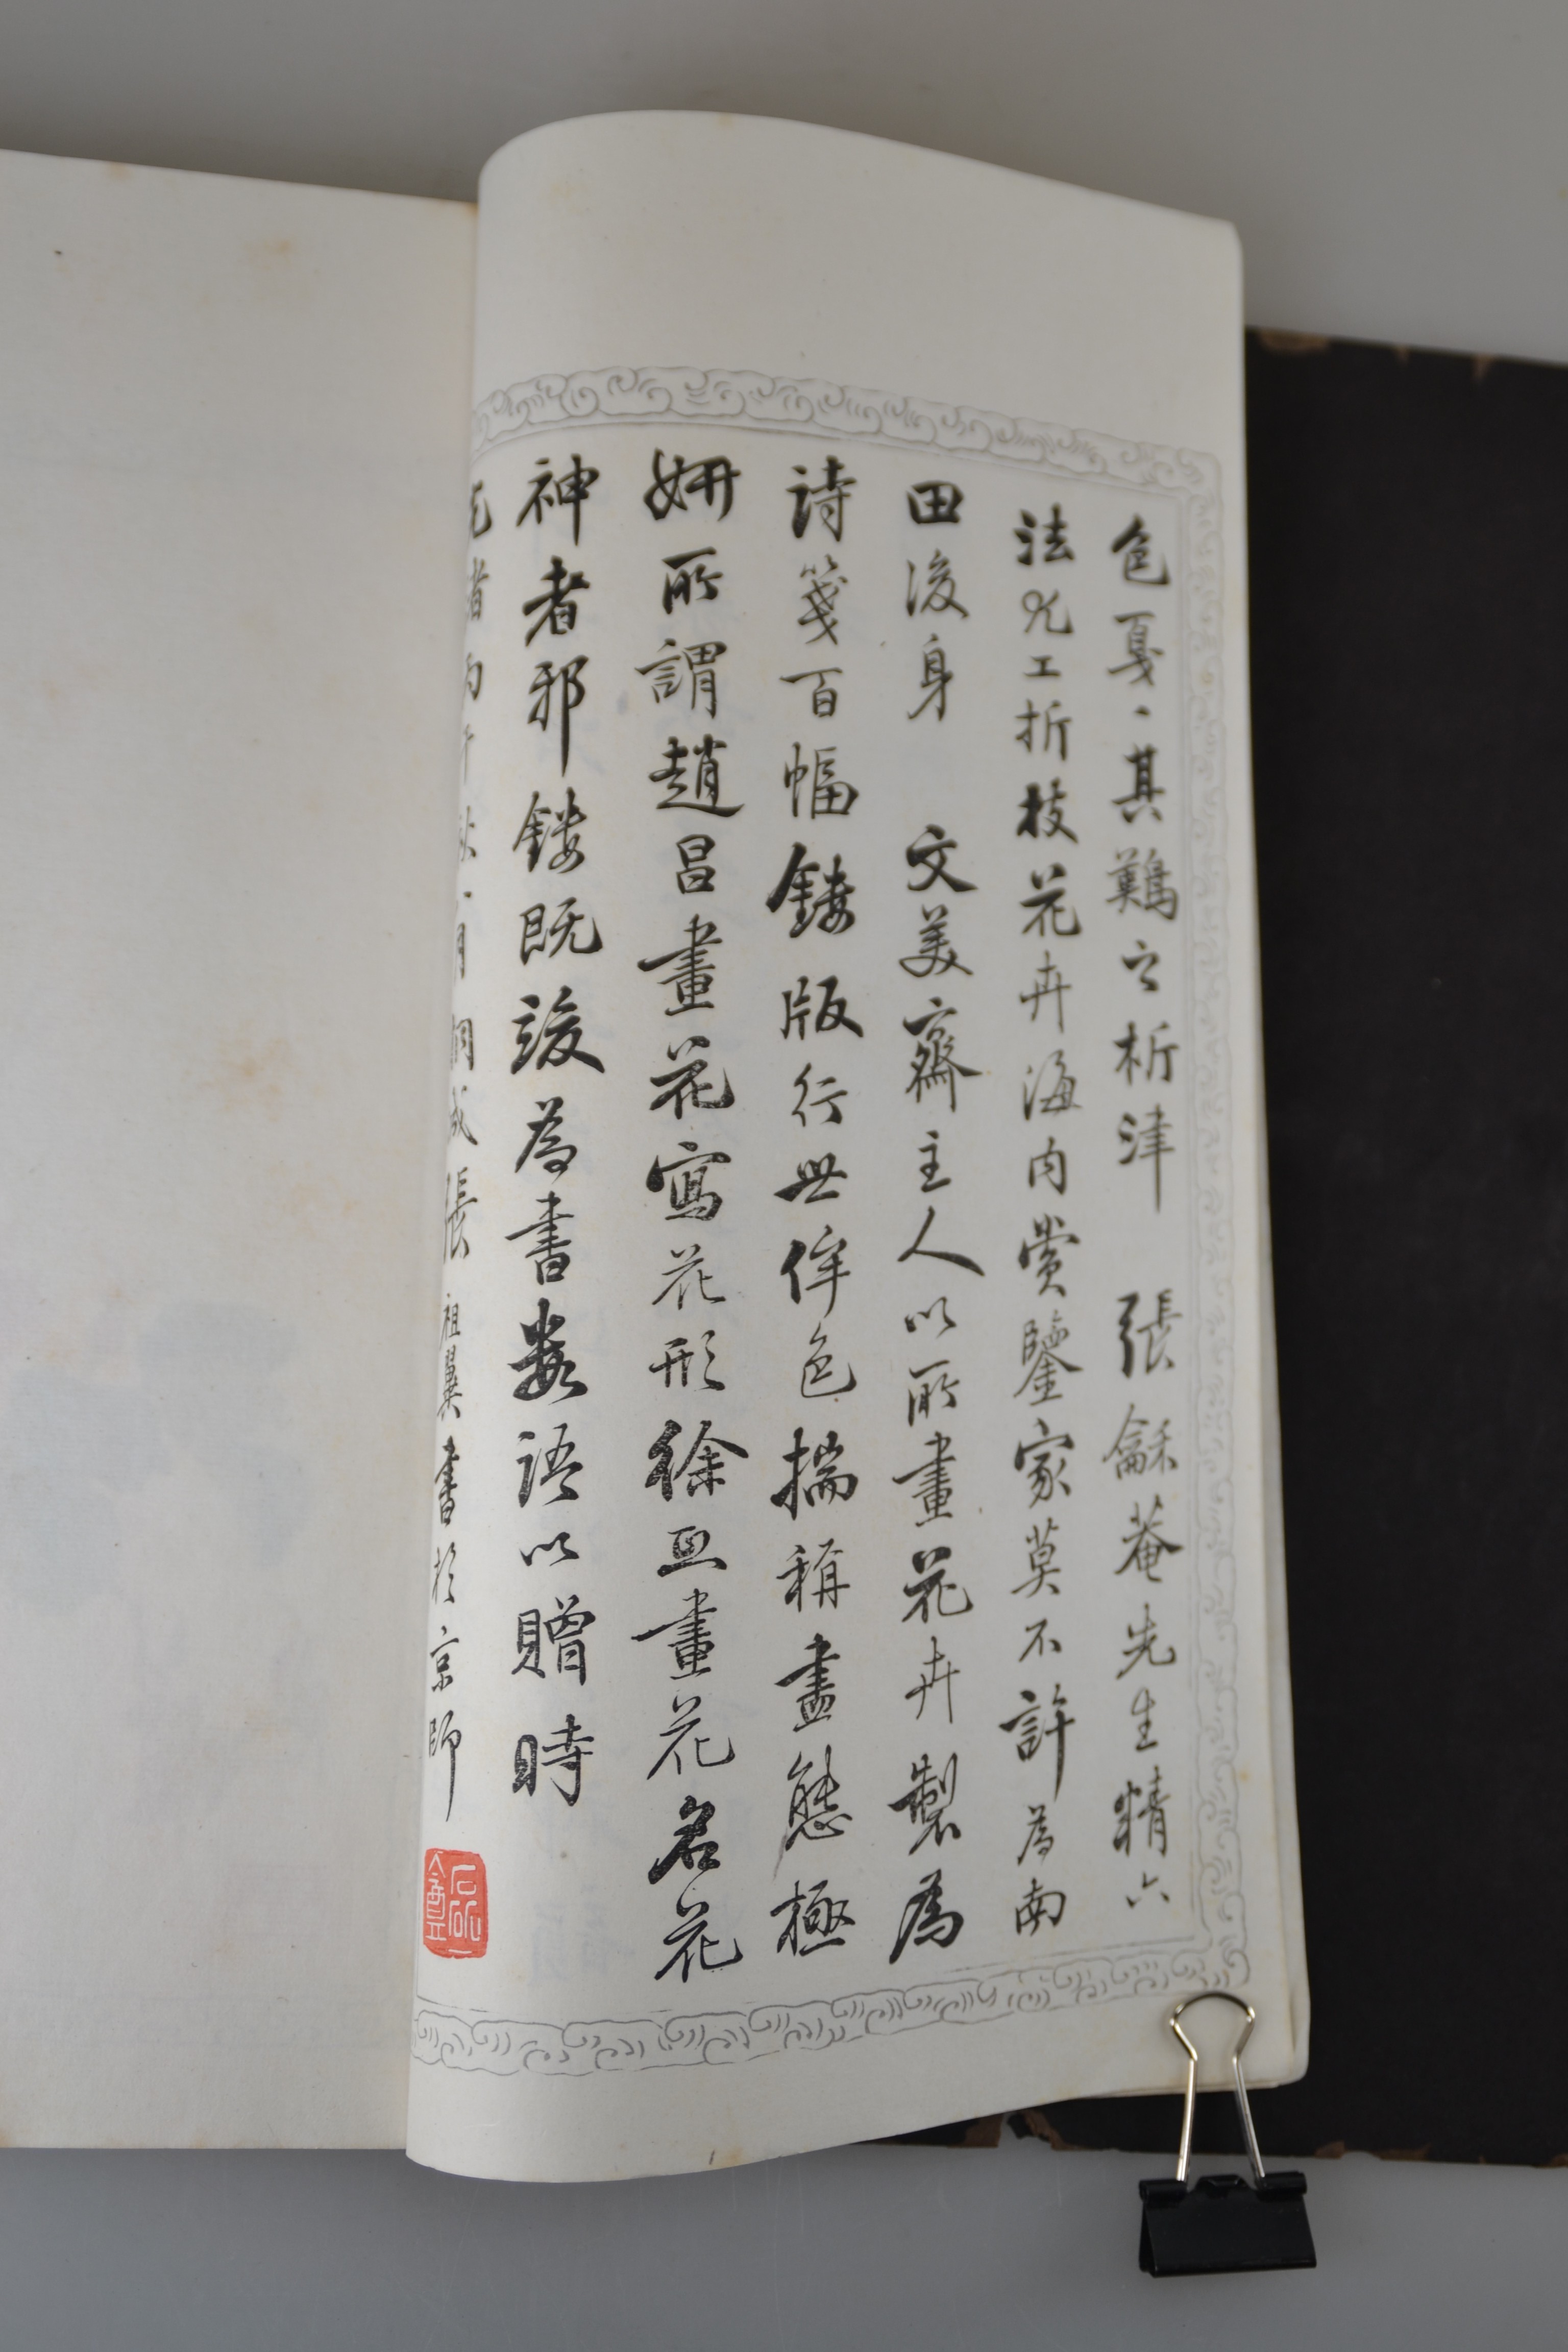 色戛丶其難之析津　張龢菴先生精六
法尤工折枝花卉海内赏鑒家莫不許為南
田後身　文美齋主人以所畫花卉製為
詩箋百幅鏤版行世侔色揣稱盡態極
妍所謂趙昌畫花寫花形徐熙畫花名花
神者邪鏤既竣為書數語以贈時
者丙午秋月桐城張祖翼書於京師